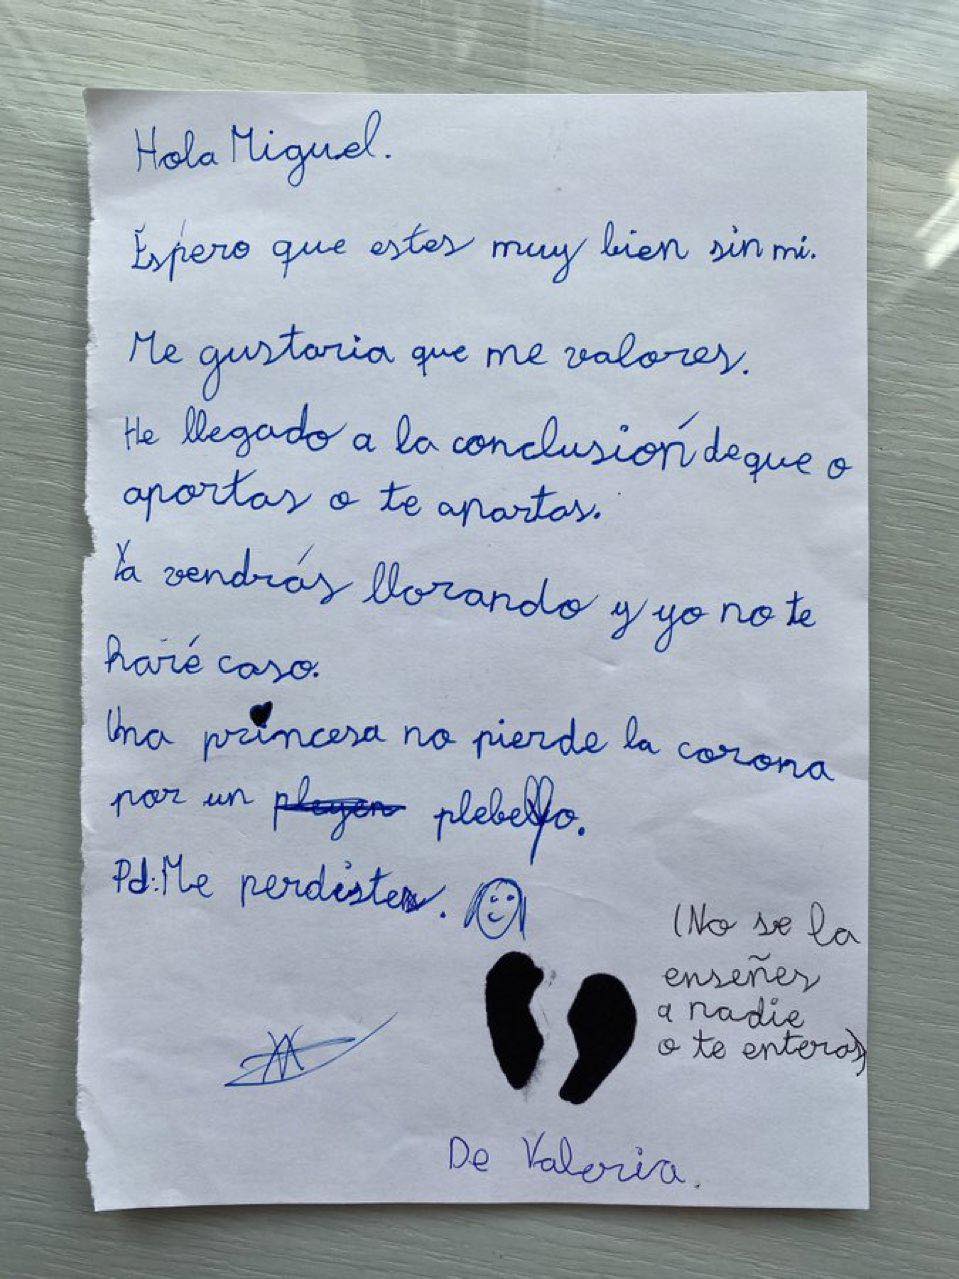 Hola Miguel.
Espero que estes muy bien sin mi.
Me gustaria que me valores.
He llegado a la conclusión de que o
aportas o te apartas.
Ya vendrás llorando y yo no te
haré caso.
Una princesa no pierde la corona
por un plebeyo.
Pd: Me perdiste.
(No se la
enseñes
a nadie
o te enteras)
De Valeria.